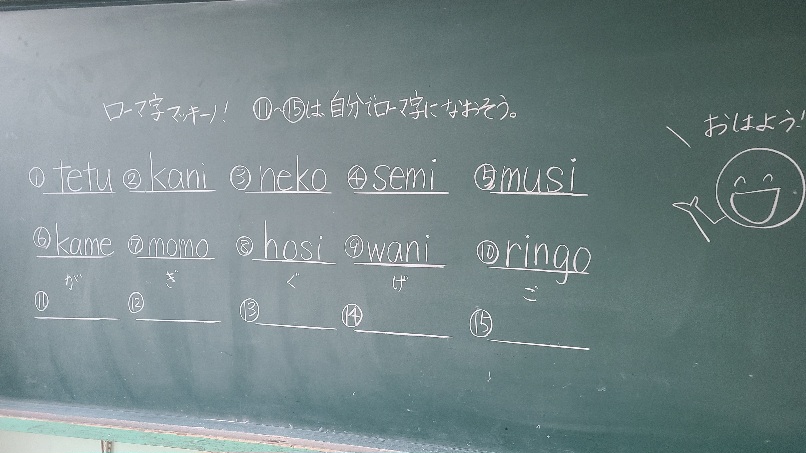 ローマ字マッキーノ! ⑪~⑮は自分でローマ字になおそう。
おはよう!
① tetu ② kani ③ neko ④ semi ⑤ musi
⑥ kame ⑦ momo ⑧ hosi ⑨ wani ⑩ ringo
が ぎ ぐ げ ご
⑪ ⑫ ⑬ ⑭ ⑮